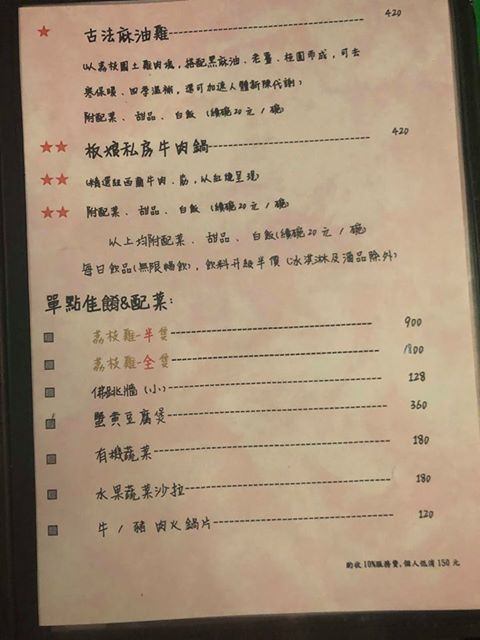 ★ 古法麻油雞 420
以荔枝園土雞肉塊，搭配黑麻油、老薑、桂圓而成，可去
寒保暖、四季溫補，還可加速人體新陳代謝）
附配菜、甜品、白飯（續碗20元/碗）
★★ 板娘私房牛肉鍋 420
★★ （精選紐西蘭牛肉、筋，以紅燒呈現）
★★ 附配菜、甜品、白飯（續碗20元/碗）
以上均附配菜、甜品、白飯（續碗20元/碗）
每日飲品（無限暢飲），飲料升級半價（冰淇淋及酒品除外）
單點佳餚&配菜：
荔枝雞-半隻 900
荔枝雞-全隻 1800
佛跳牆（小） 128
蟹黃豆腐煲 360
有機蔬菜 180
水果蔬菜沙拉 180
牛/豬肉火鍋片 120
酌收10%服務費，個人低消150元